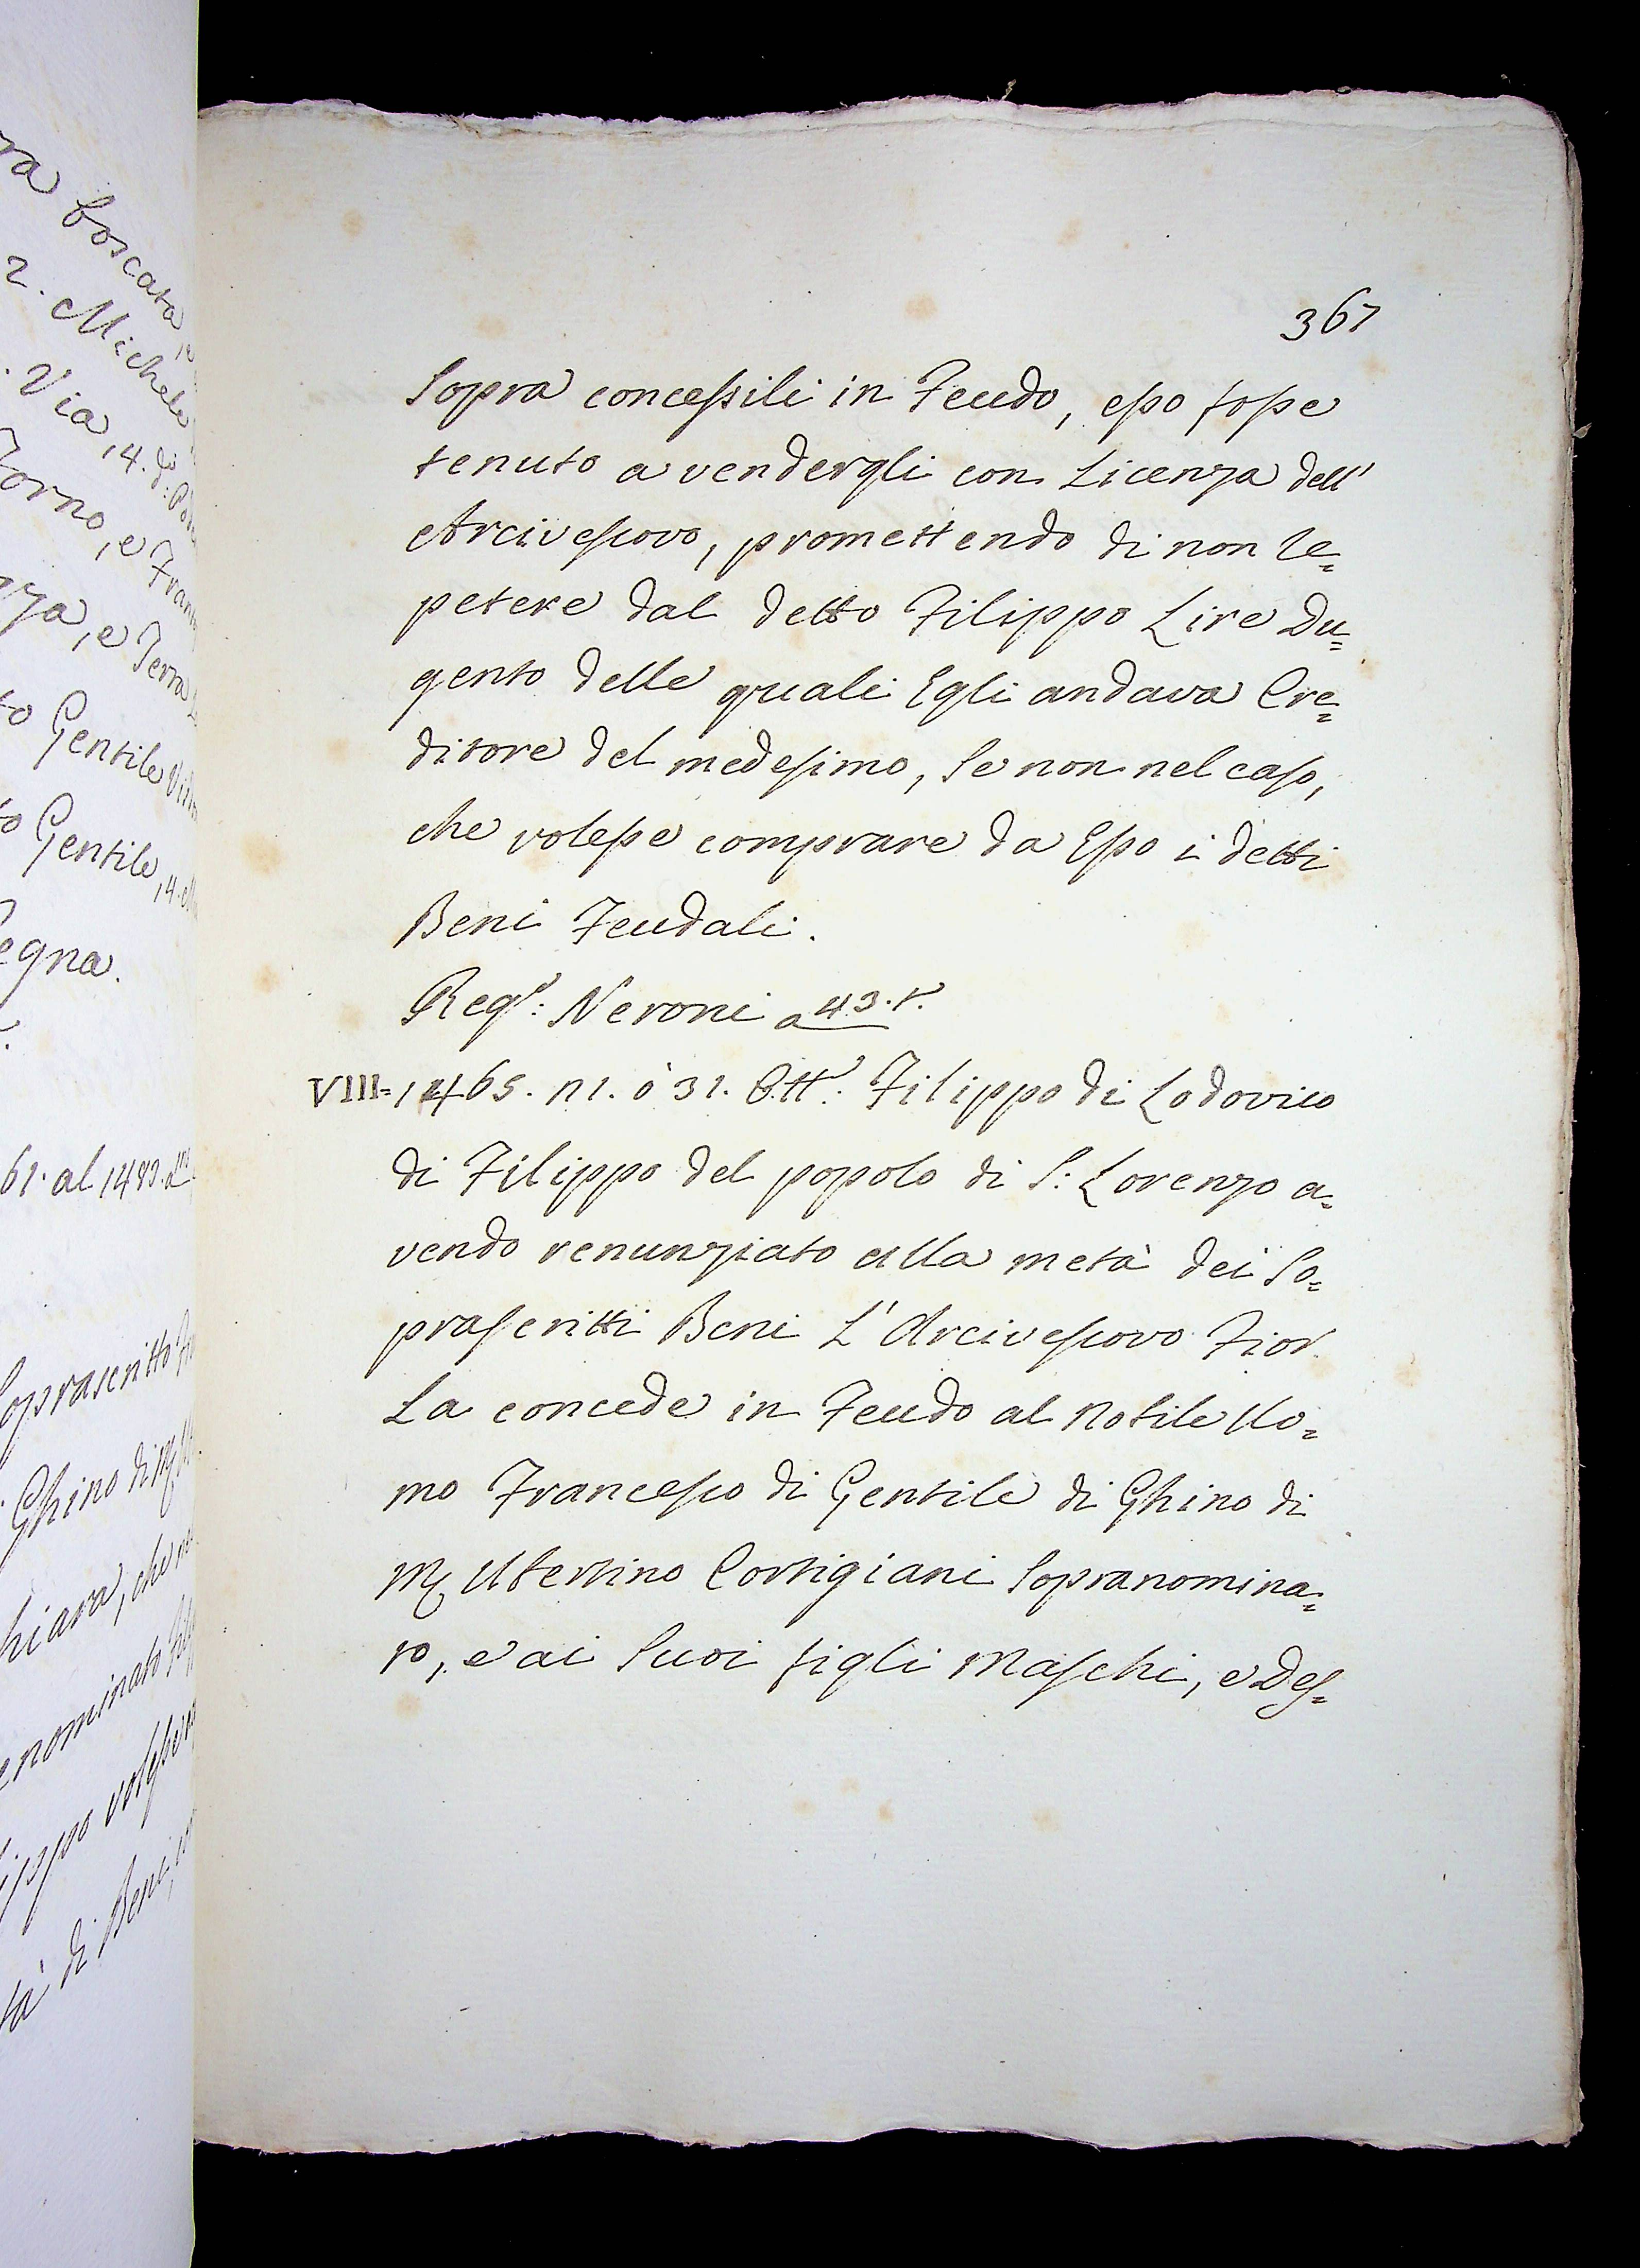 ra boscata,
2. Michele
Via, 4. di
orno, e Fran
zza, e Terra
to Gentile
to Gentile, 4.
egna.
61. al 1483.
Soprascritto
Ghino di
hiara, che
enominato
ippo volesse
tà di Beni,
367
Sopra concessili in Feudo, esso fosse
tenuto a vendergli con Licenza dell'
Arcivescovo, promettendo di non re=
petere dal detto Filippo Lire Du=
gento delle quali Egli andava Cre=
ditore del medesimo, Se non nel caso,
che volesse comprare da Esso i detti
Beni Feudali.
Reg.º: Neroni a 43.t.
VIII=1465. n1. ò 31. Ott.e: Filippo di Lodovico
di Filippo del popolo di S: Lorenzo a=
vendo renunziato alla metà dei So=
prascritti Beni L'Arcivescovo Fior.
La concede in Feudo al Nobile Uo=
mo Francesco di Gentile di Ghino di
M. Ubertino Cortigiani Sopranomina=
to, e ai Suoi figli Maschi, e Des=